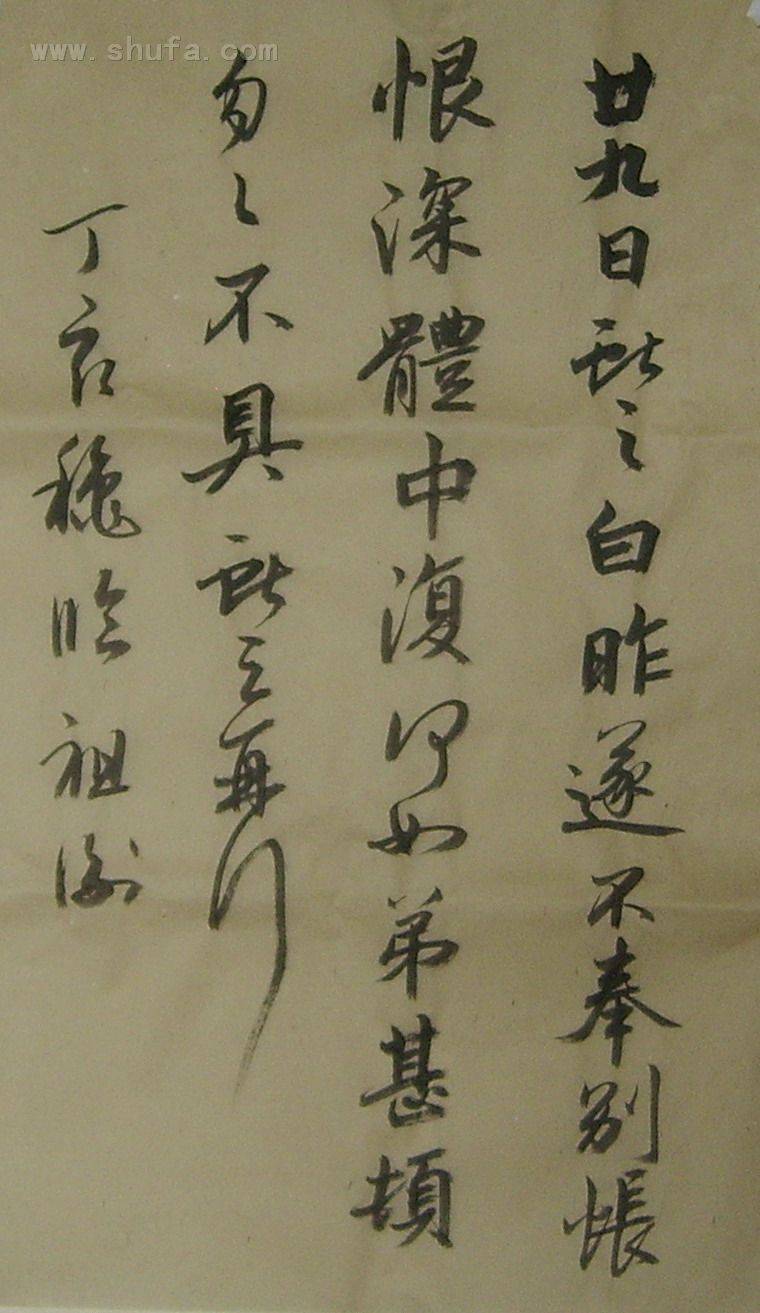 www.shufa.com
廿九日獻之白昨遂不奉別悵
恨深體中復何如弟甚頓
匆々不具獻之再拜
丁亥穐臨祖